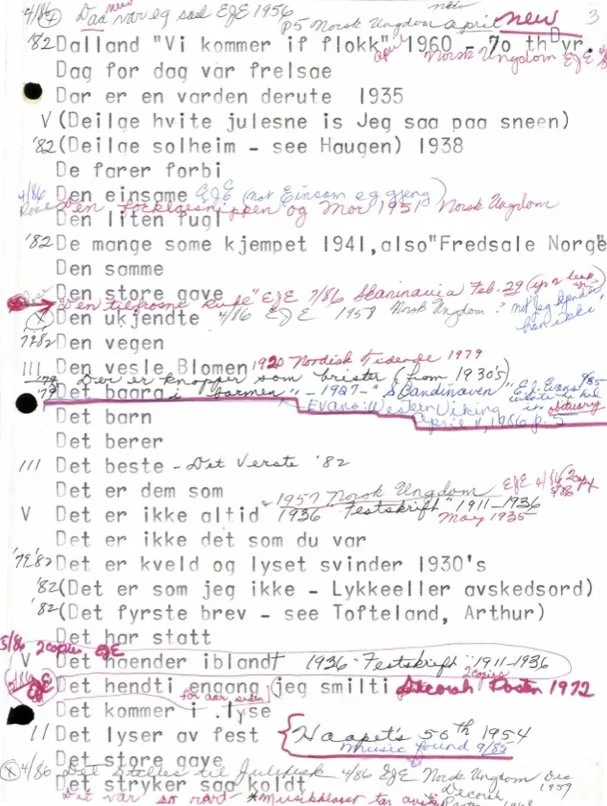 4/86 Daa var eg sael EJE 1956 new
P5 Norsk Ungdom april new 3
'82 Dalland "Vi kommer if flokk" 1960 - 70 th Dyr.
april Norsk Ungdom EJE
Dag for dag var frelsae
Dar er en varden derute 1935
V (Deilge hvite julesne is Jeg saa paa sneen)
'82 (Deilge solheim - see Haugen) 1938
De farer forbi
4/86 Den einsame EJE (not Einsam eg gjeng)
Den forklaesnippen og Mor 1951 Norsk Ungdom
Den liten fugl
'82 De mange some kjempet 1941, also "Fredsale Norge
Den samme
Den store gave
"Den tilfrosne rude" EJE 7/86 Skaninavia Feb. 29
Den ukjendte 4/86 EJE 1958 Norsk Ungdom ? not Jeg kjender han ikke
7982 Den vegen
111 Den vesle Blomen 1920 Nordisk Tidende 1979
Der er knopper som brister (from 1930's)
'79 Det baara i "barmen" - 1987 - "Scandinaven" E.J. Evans
Evans: Western Viking April 11, 1986 p. 5
in obituary
Det barn
Det berer
111 Det beste - Det Verste '82
Det er dem som
1957 Norsk Ungdom EJE 4/86 2 copy
V Det er ikke altid 1936 "Festskrift" 1911-1936
May 1935
Det er ikke det som du var
'79'82 Det er kveld og lyset svinder 1930's
'82 (Det er som jeg ikke - Lykkeeller avskedsord)
'82 (Det fyrste brev - see Tofteland, Arthur)
Det har statt
5/86 2 copies EJE
V Det haender iblandt 1936 "Festskrift" 1911-1936
2 copies
5/86 EJE Det hendti engang (jeg smilti Decorah Posten 1972
for aar siden)
Det kommer i .lyse
11 Det lyser av fest { Haapet's 50th 1954
music found 9/82
Det store gave
4/86 Det stelles til Julebesk 4/86 EJE Norsk Ungdom Dec 1959
Det stryker saa koldt
Det var so rart * Decorah Posten